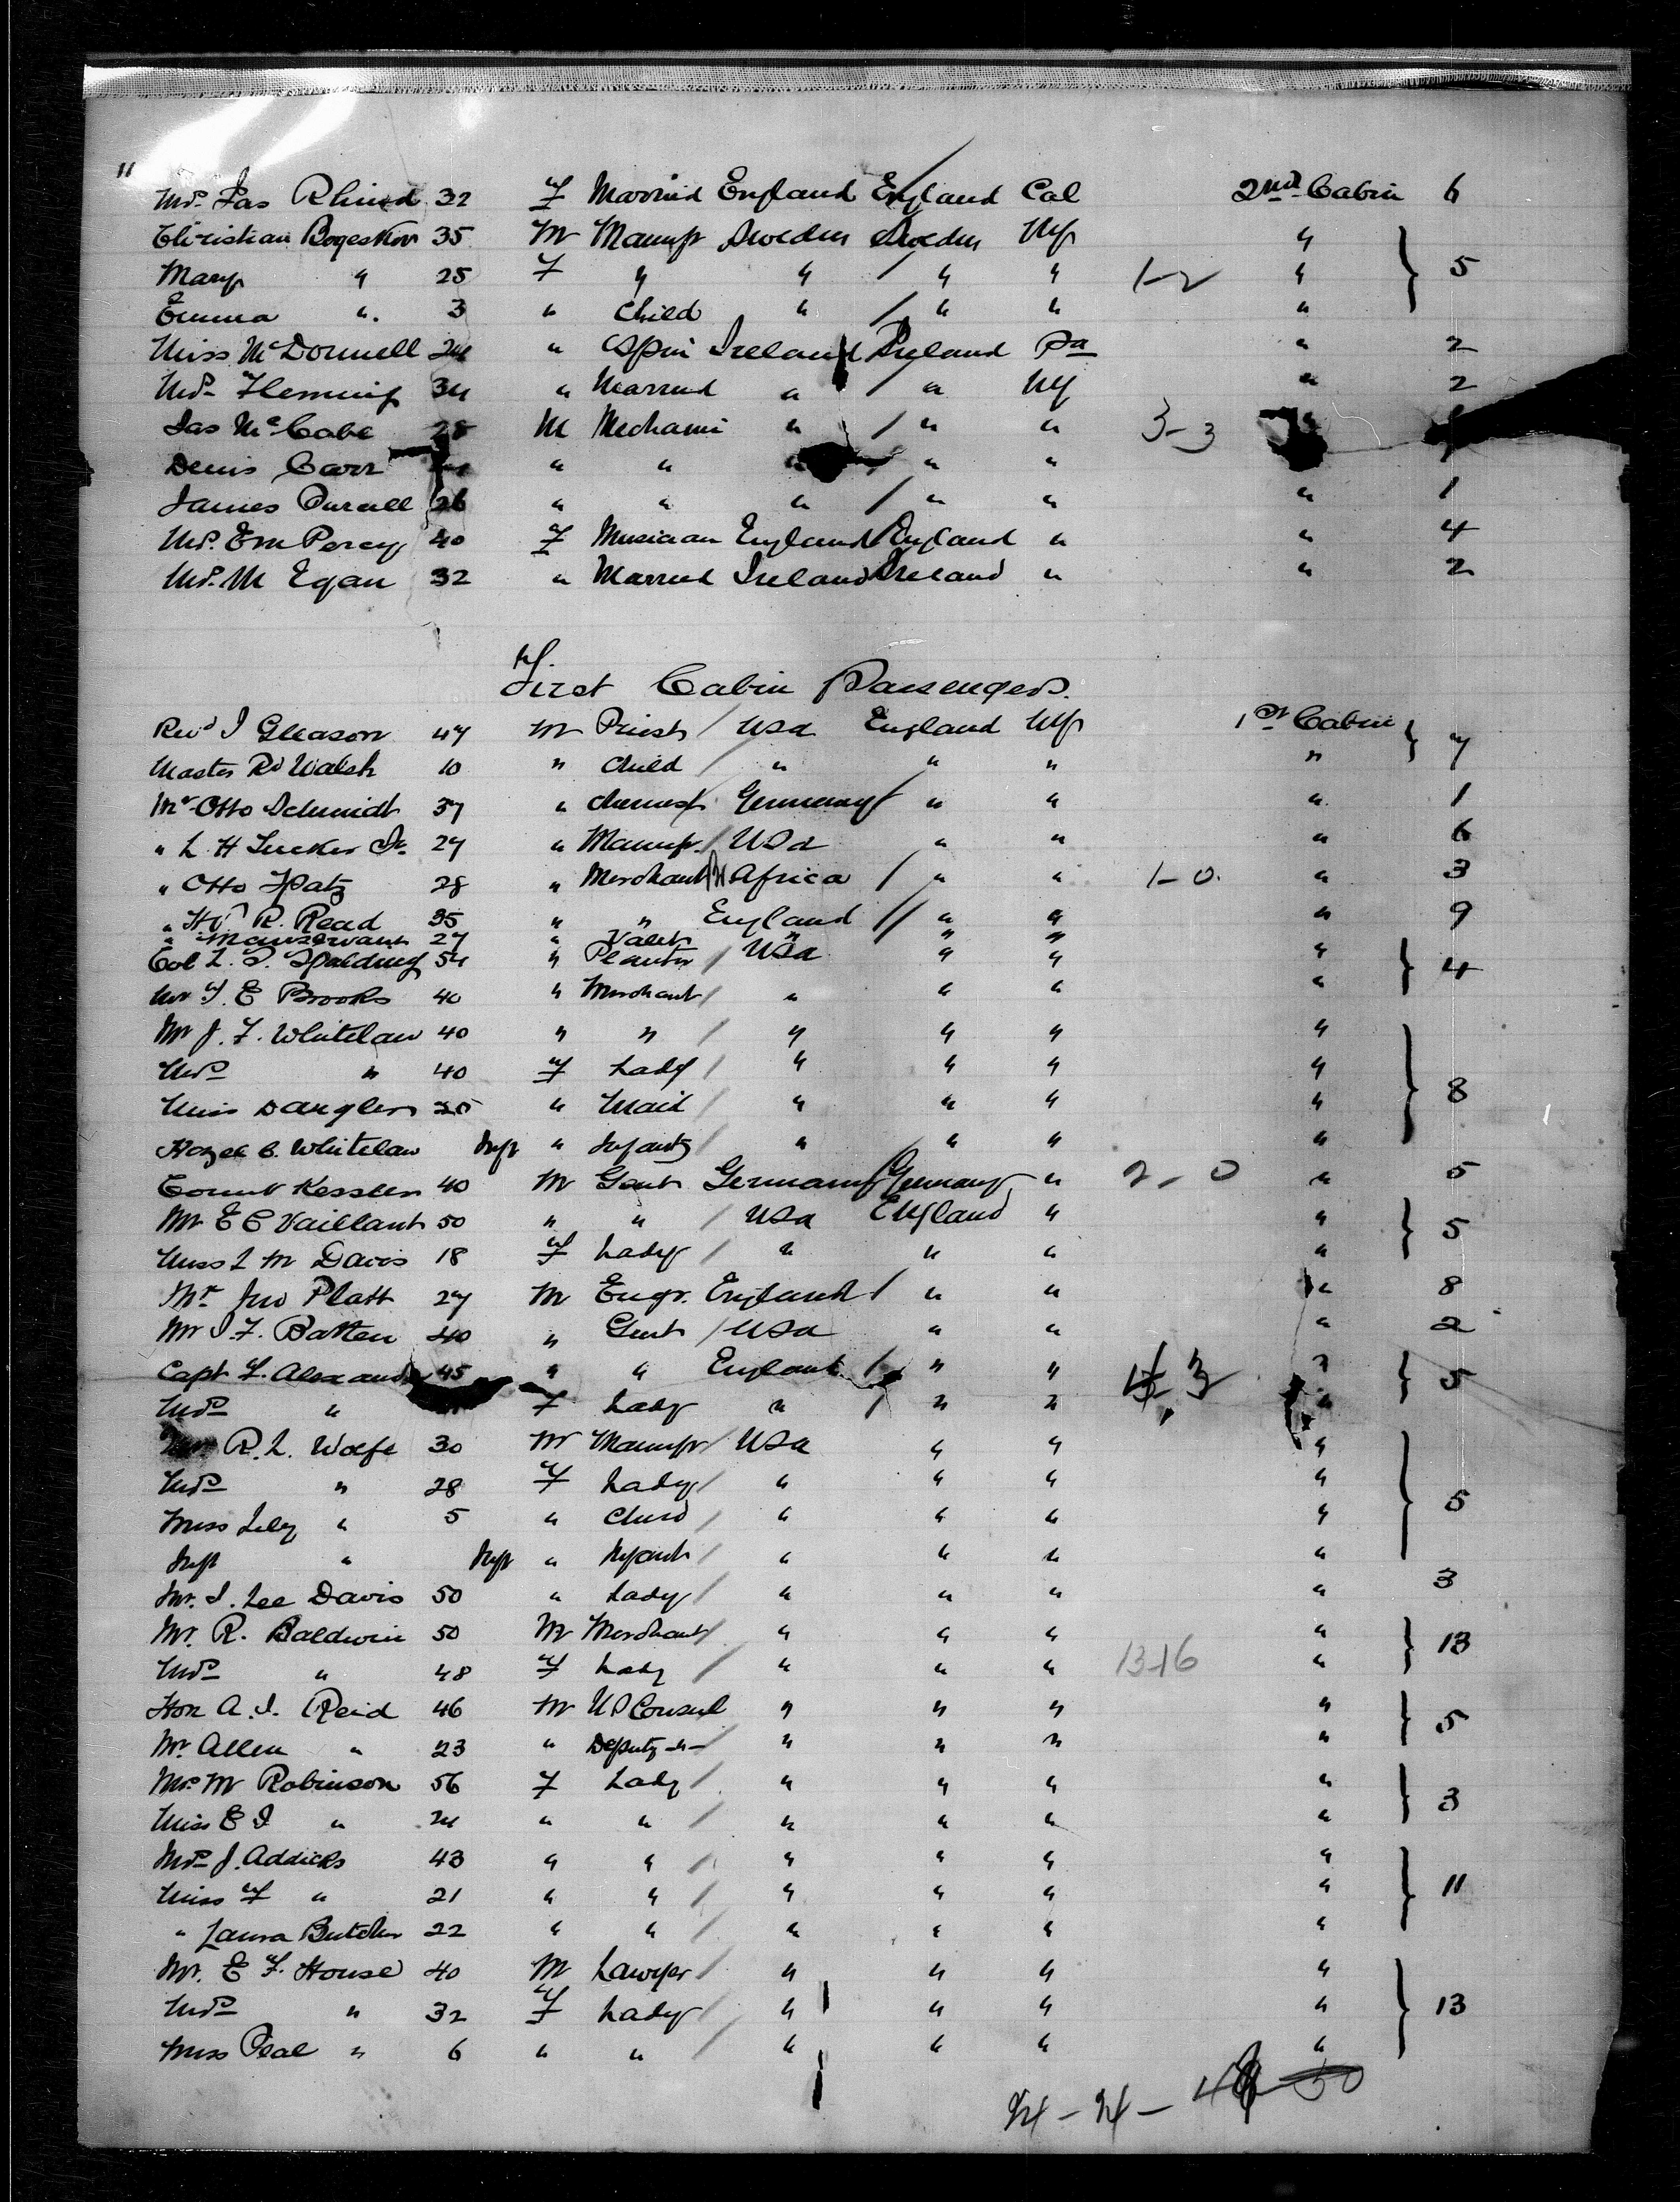 11
Mrs. Jas Rhind 32 F Married England England Cal 2nd Cabin 6
Christian Bogeskov 35 M Manufr Sweden Sweden NY " } 5
Mary " 25 F " " " " 1-2 "
Emma " 3 " Child " " "
Miss McDonnell 24 " Spin Ireland Ireland Pa " 2
Mrs Fleming 34 " Married " " NY " 2
Jas McCabe 28 M Mechanic " " " 3-3
Denis Carr " " " "
James Purcell 26 " " " " " " 1
Mrs. Em Percy 40 F Musician England England " " 4
Mrs. M Egan 32 " Married Ireland Ireland " " 2
First Cabin Passengers.
Revd J Gleason 47 M Priest / USA England NY 1st Cabin } 7
Master Rd Walsh 10 " Child / " " " "
Mr Otto Schmidt 37 " Chemist Germany / " " " 1
" L H Tucker Jr 27 " Manufr. / USA " " " 6
" Otto Spatz 28 " Merchant Africa / " " 1-0. " 3
" R. Read 35 " " England // " " " 9
" Manservant 27 " Valet " " "
Col L. S. Spalding 54 " Planter / USA " " " } 4
Mr F. E Brooks 40 " Merchant / " " " "
Mr J. F. Whitelaw 40 " " / " " " " } 8
Mrs " 40 F Lady / " " " "
Miss Dangler 25 " Maid / " " " "
Hazel B. Whitelaw Inft " Infant / " " " "
Count Kessler 40 M Gent Germany / Germany " 2-0 " 5
Mr E C Vaillant 50 " " / USA England " " } 5
Miss L M Davis 18 F Lady / " " " "
Mr Jno Platt 27 M Engr. England / " " " 8
Mr J. F. Batten 40 " Gent / USA " " " 2
Capt F. Alexander 45 " " England / " " 3 " } 5
Mrs " F Lady " / " " "
R. L. Wolfe 30 M Manufr / USA " " " } 5
Mrs " 28 F Lady / " " " "
Miss Lily " 5 " Child / " " " "
Inft " Inft " Infant / " " " "
Mr. J. Lee Davis 50 " Lady / " " " " 3
Mr. R. Baldwin 50 M Merchant / " " " " } 13
Mrs " 48 F Lady / " " " 13-16 "
Hon A. I. Reid 46 M US Consul " " " " } 5
Mr. Allen " 23 " Deputy -"- " " " "
Mrs M Robinson 56 F Lady / " " " " } 3
Miss E J " 24 " " / " " " "
Mrs J. Addicks 43 " " / " " " " } 11
Miss F " 21 " " / " " " "
" Laura Butcher 22 " " / " " " "
Mr. E F. House 40 M Lawyer / " " " " } 13
Mrs " 32 F Lady / " " " "
Miss Peal " 6 " " / " " " "